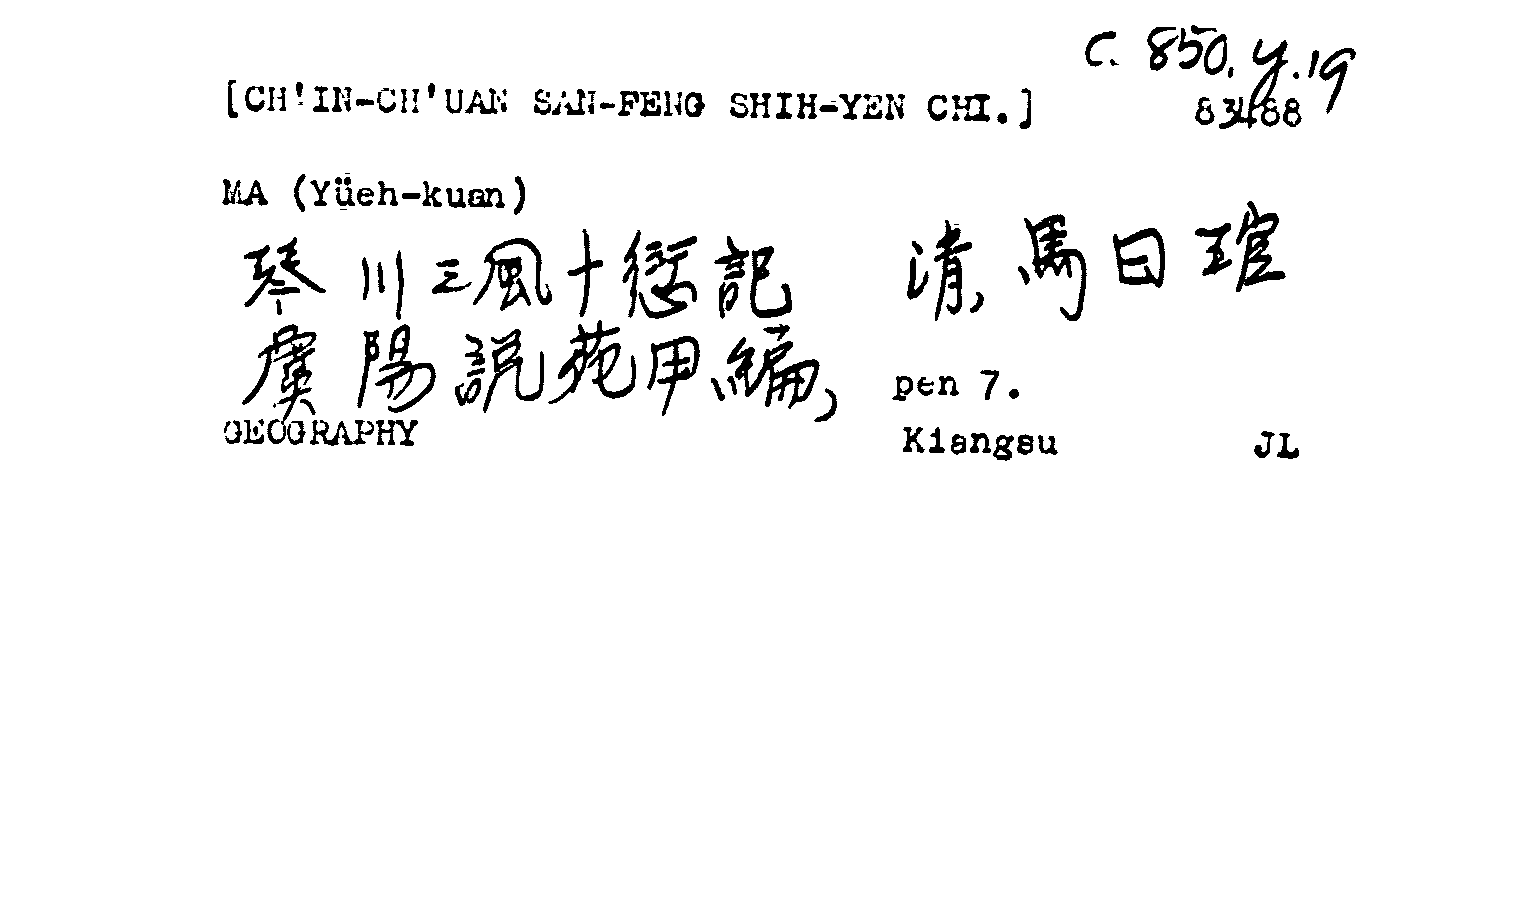 C. 850. y. 19
[CH'IN-CH'UAN SAN-FENG SHIH-YEN CHI.] 83488
MA (Yüeh-kuan)
琴川三風十愆記 清 馬曰琯
虞陽説苑甲編, pen 7.
GEOGRAPHY Kiangsu JL